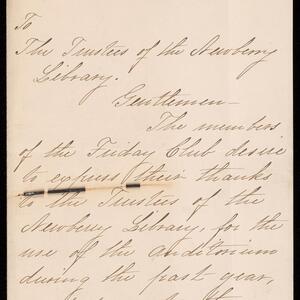 To
The Trustees of the Newberry
Library.
Gentlemen—
The members
of the Friday Club desire
to express their thanks
to the Trustees of the
Newberry Library, for the
use of the auditorium
during the past year,